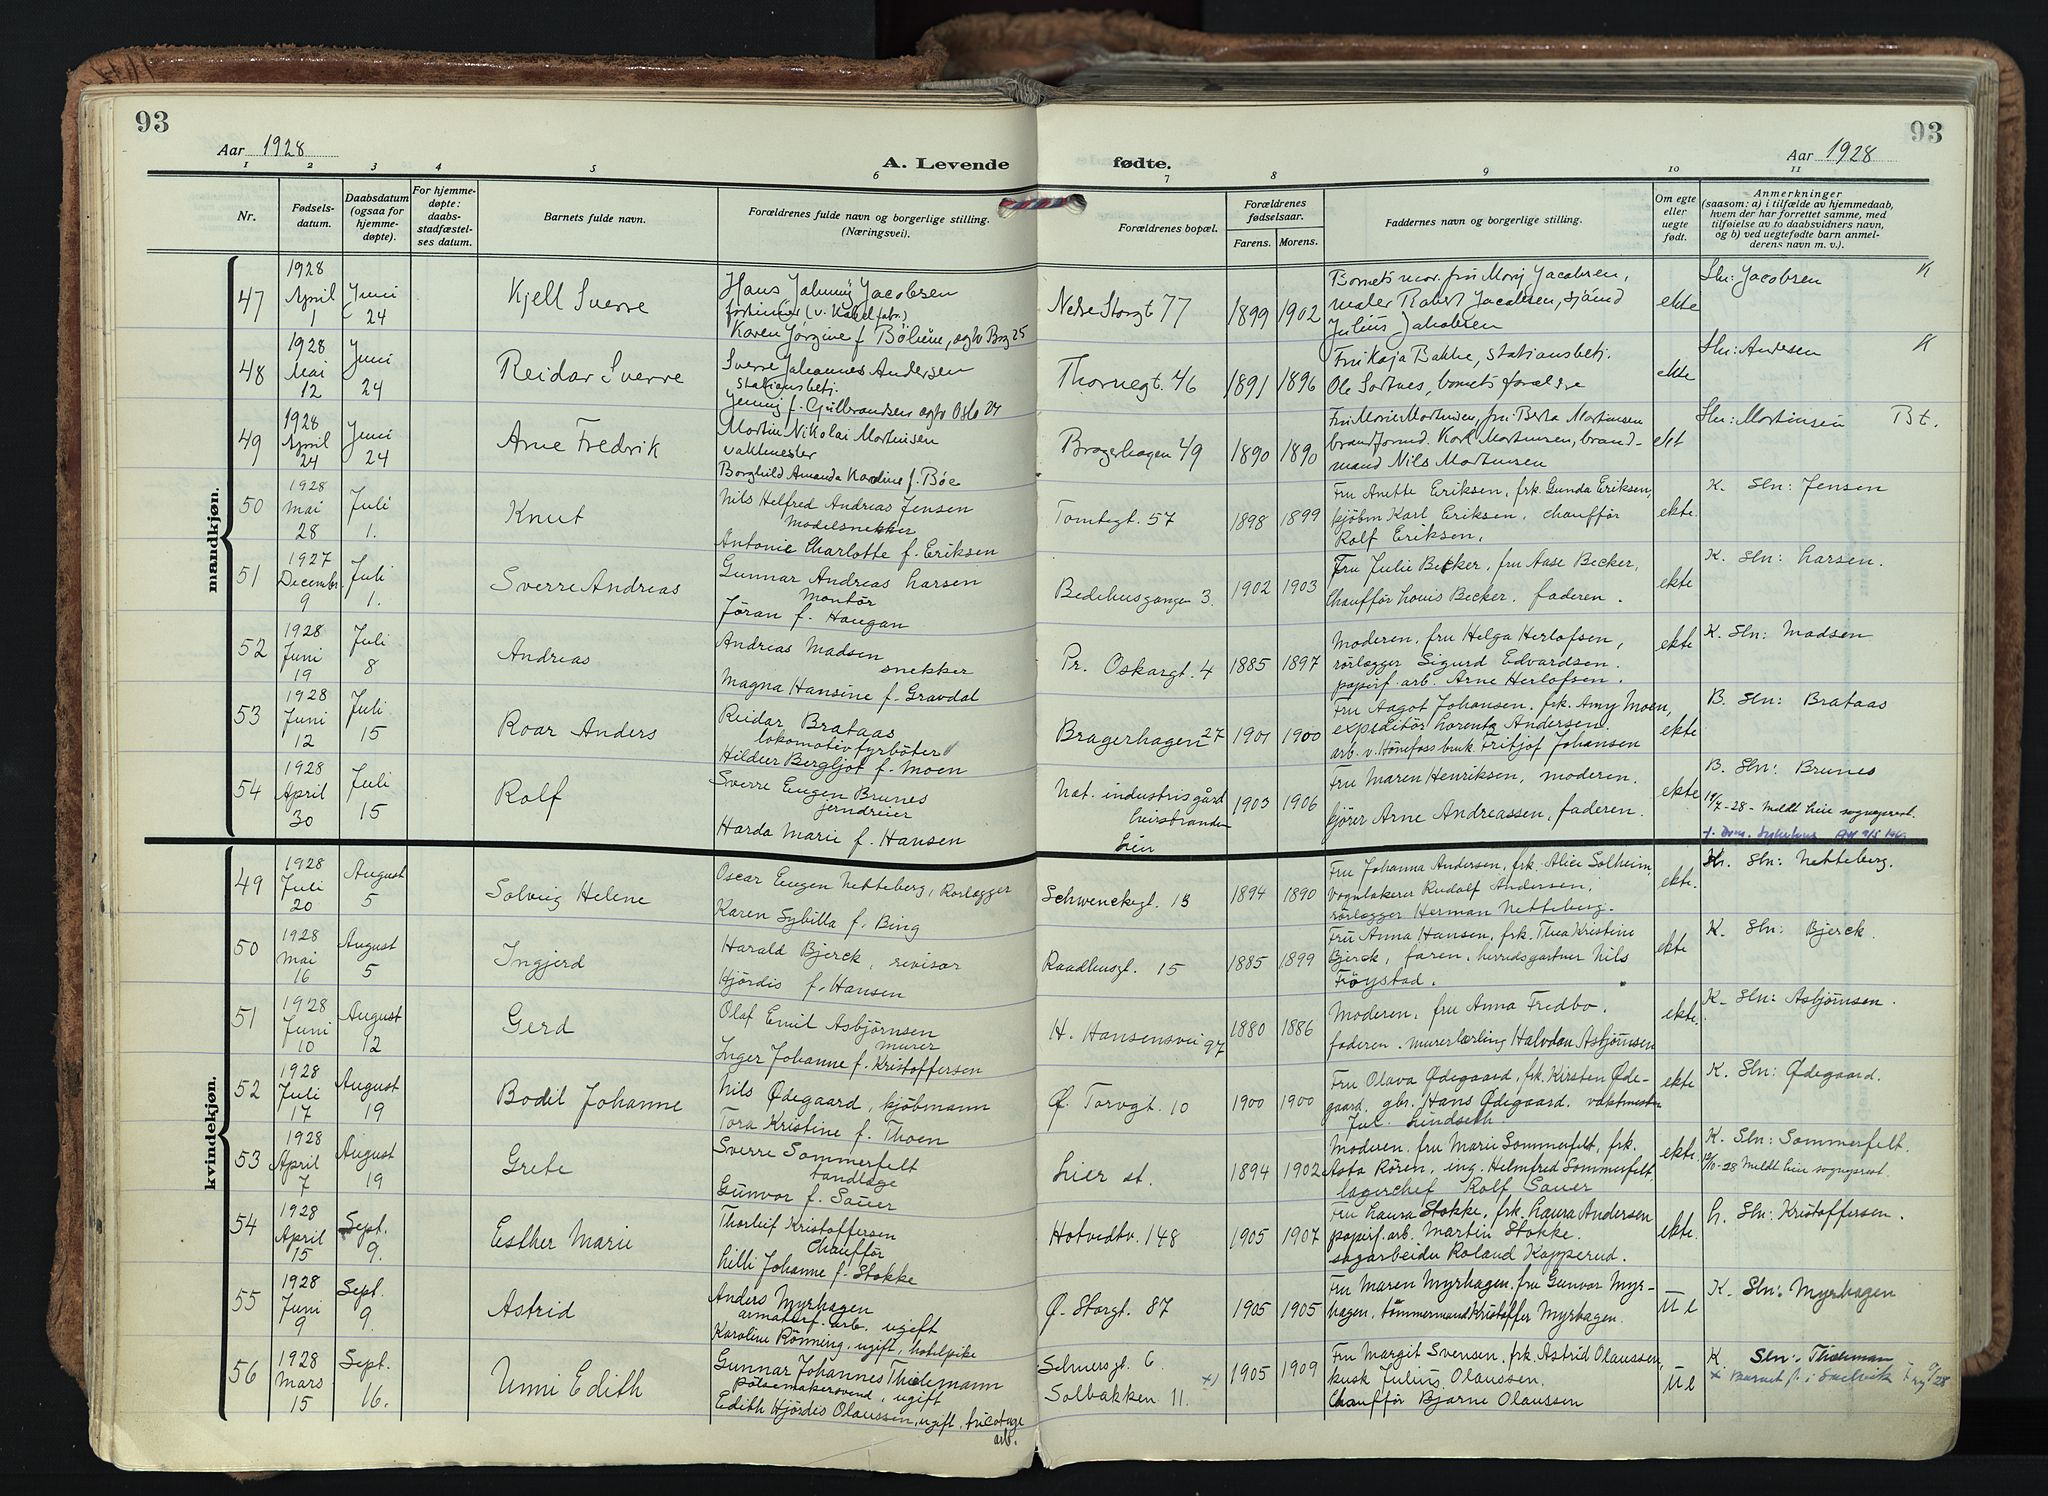 93
93
Aar 1928
A. Levende fødte.
Aar 1928
1 2 3 4 5 6 7 8 9 10 11
Nr.
Fødsels-
datum.
Daabsdatum
(ogsaa for
hjemme-
døpte).
For hjemme-
døpte:
daabs-
stadfæstel-
ses datum.
Barnets fulde navn.
Forældrenes fulde navn og borgerlige stilling.
(Næringsvei).
Forældrenes bopæl.
Forældrenes
fødselsaar.
Farens. Morens.
Faddernes navn og borgerlige stilling.
Om egte
eller
uegte
født.
Anmerkninger
(saasom: a) i tilfælde av hjemmedaab,
hvem der har forrettet samme, med
tilføielse av to daabsvidners navn,
og b) ved uegtefødte barn anmel-
derens navn m. v.).
mandkjøn.
47
1928
April
1
Juni
24
Kjell Sverre
Hans Jacobsen
(v. Kabelfabr.)
Karen Jørgine f.
Nedre Storgt 77
1899 1902
Jacobsen,
maler Robert Jacobsen,
Julius Jakobsen
ekte
Sln: Jacobsen K
48
1928
Mai
12
Juni
24
Reidar Sverre
Sverre Johannes Andersen
stationsbetj.
Jenny f. Gulbrandsen Oslo 24
Thornegt. 46
1891 1896
Fru Kaja Bakke, stationsbetj.
Ole
ekte
Sln: Andersen K
49
1928
April
24
Juni
24
Arne Fredrik
Martin Nikolai Mortinsen
vaktmester
Borghild Amanda Karoline f. Bøe
Bragerhagen 49
1890 1890
Fru Mortinsen, fru Berta Mortinsen
Mortinsen, brand-
mand Nils Mortinsen
ekt
Sln: Mortinsen Bt.
50
1928
Mai
28
Juli
1.
Knut
Nils Helfred Andreas Jensen
Modelsnekker
Antonie Charlotte f. Eriksen
Tomtegt. 57
1898 1899
Fru Anette Eriksen, frk. Gunda Eriksen,
kjøbm Karl Eriksen, chauffør
Rolf Eriksen.
ekte.
K. Sln: Jensen
51
1927
Decembr.
9
Juli
1.
Sverre Andreas
Gunnar Andreas Larsen
Montør
Jøran f. Haugan
Bedehusgangen 3.
1902 1903
Fru Julie Becker, fru Aase Becker,
Chauffør Louis Becker. faderen.
ekte
K. Sln: Larsen.
52
1928
Juni
19
Juli
8
Andreas
Andreas Madsen
snekker
Magna Hansine f. Gravdal
Pr. Oskarsgt. 4
1885 1897
Moderen, fru Helga Herlofsen,
rørlegger Sigurd Edvardsen.
papirf. arb. Arne Herlofsen.
ekte
K. Sln: Madsen
53
1928
Juni
12
Juli
15
Roar Anders
Reidar Brataas
lokomotivfyrbøter
Hildur Bergljot f. Moen
Bragerhagen 27
1901 1900
Fru Aagot Johansen. frk. Amy Moen,
expeditør Lorentz Andersen.
arb. v. Hønefoss bruk Fritjof Johansen
ekte
B. Sln: Brataas
54
1928
April
30
Juli
15
Rolf
Sverre Eugen Brunes
jerndreier
Harda Marie f. Hansen
Nat. industrisgård
Lierstranden
Lier
1903 1906
Fru Maren Henriksen, moderen.
kjører Arne Andreassen, faderen.
ekte
B. Sln: Brunes
19/7-28 - Meldt Lier sogneprest.
kvindekjøn.
49
1928
Juli
20
August
5
Solveig Helene
Oscar Eugen Netteberg, Rørlegger
Karen Sybilla f. Bing
Schwenckegt. 13
1894 1890
Fru Johanna Andersen, frk. Alice Solheim,
Vognlakerer Rudolf Andersen,
rørlegger Herman Netteberg.
ekte.
K. Sln: Netteberg.
50
1928
Mai
16
August
5
Ingjerd
Harald Bjerck, revisor
Hjørdis f. Hansen
Raadhusgt. 15
1885 1899
Fru Anna Hansen, frk. Thea Kristine
Bjerck, faren, herredsgartner Nils
Frøystad.
ekte
K. Sln: Bjerck.
51
1928
Juni
10
August
12
Gerd
Olaf Emil Asbjørnsen
murer
Inger Johanne f. Kristoffersen
H. Hansensvei 97
1880 1886
Moderen, fru Anna Fredbo.
faderen. murerlærling Halvdan Asbjørnsen
ekte.
K. Sln: Asbjørnsen.
52
1928
Juli
17
August
19
Bodil Johanne
Nils Ødegaard, kjøbmann
Tora Kristine f. Thoen
Ø. Torvgt. 10
1900 1900
Fru Olava Ødegaard, frk. Kirsten Øde-
gaard. gbr. Hans Ødegaard. vaktmester
Jul. Lindseth.
ekte
K. Sln: Ødegaard.
53
1928
April
7
August
19
Grete
Sverre Sommerfelt
tandlæge
Gunvor f. Sauer
Lier st.
1894 1902
Moderen. fru Marie Sommerfelt, frk.
Asta Røren, ing. Helmfred Sommerfelt,
lagerchef Rolf Sauer
ekte.
K. Sln: Sommerfelt.
Meldt Lier sogneprest.
54
1928
April
15
Sept.
9.
Esther Marie
Thorleif Kristoffersen
Chauffør
Lilli Johanne f. Stokke
Hotvedtv. 148
1905 1907
Fru Laura Stokke, frk. Laura Andersen
papirf. arb. Martin Stokke.
sagarbeider Roland Kopperud.
ekte.
L. Sln: Kristoffersen.
55
1928
Juni
9
Sept.
9.
Astrid
Anders Myrhagen
armaturf. arb. ugift
Karoline Rønning, ugift, hotelpike
Ø. Storgt. 87
1905 1905
Fru Maren Myrhagen, fru Gunvor Myr-
hagen. tømmermand Kristoffer Myrhagen.
U e
K. Sln: Myrhagen
56
1928
Mars
15
Sept.
16.
Unni Edith
Gunnar Johannes Thelemann
pølsemakersvend, ugift
Edith Hjørdis Olaussen, ugift. tricotage
arb.
Selmersgt. 6
Solbakken 11. x)
1905 1909
Fru Margit Svensen, frk. Astrid Olaussen,
kusk Julius Olaussen.
Chauffør Bjarne Olaussen
U e
K Sln: Thelemann
x Barnet f. i